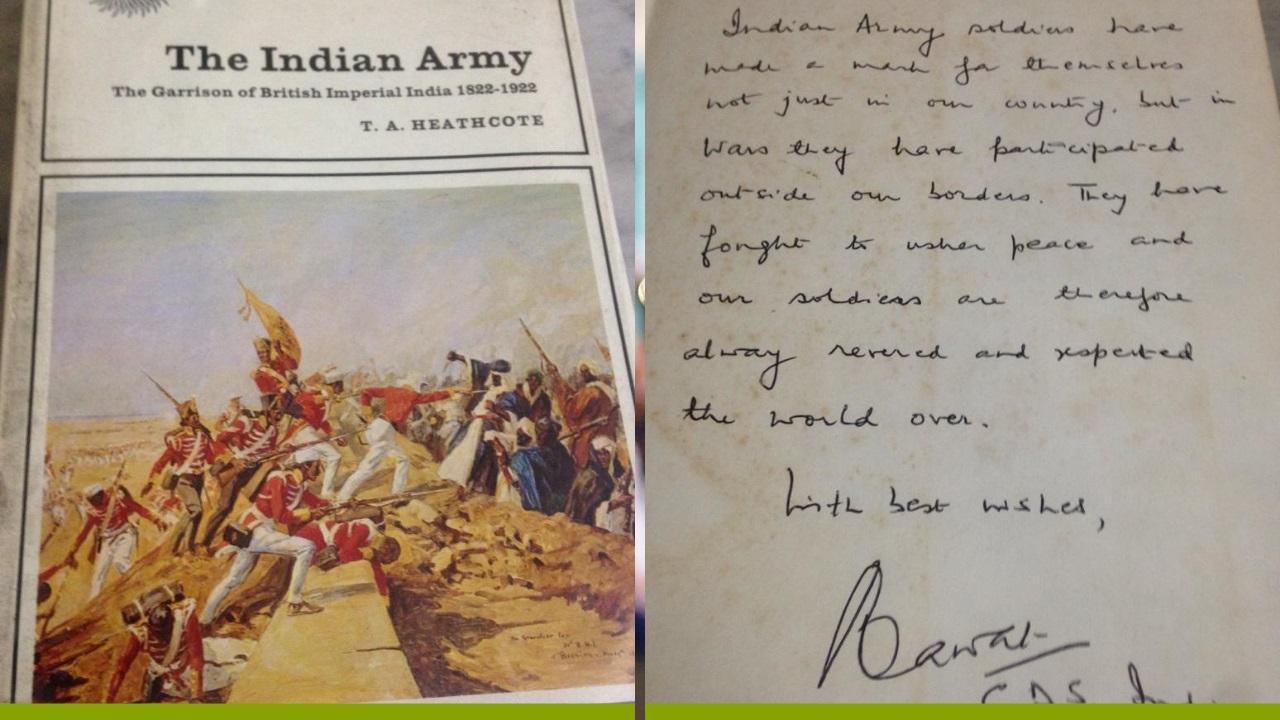 The Indian Army
The Garrison of British Imperial India 1822-1922
T. A. HEATHCOTE
Indian Army soldiers have
made a mark for themselves
not just in our country, but in
Wars they have participated
outside our borders. They have
fought to usher peace and
our soldiers are therefore
alway revered and respected
the world over.
With best wishes,
Rawat
CDS